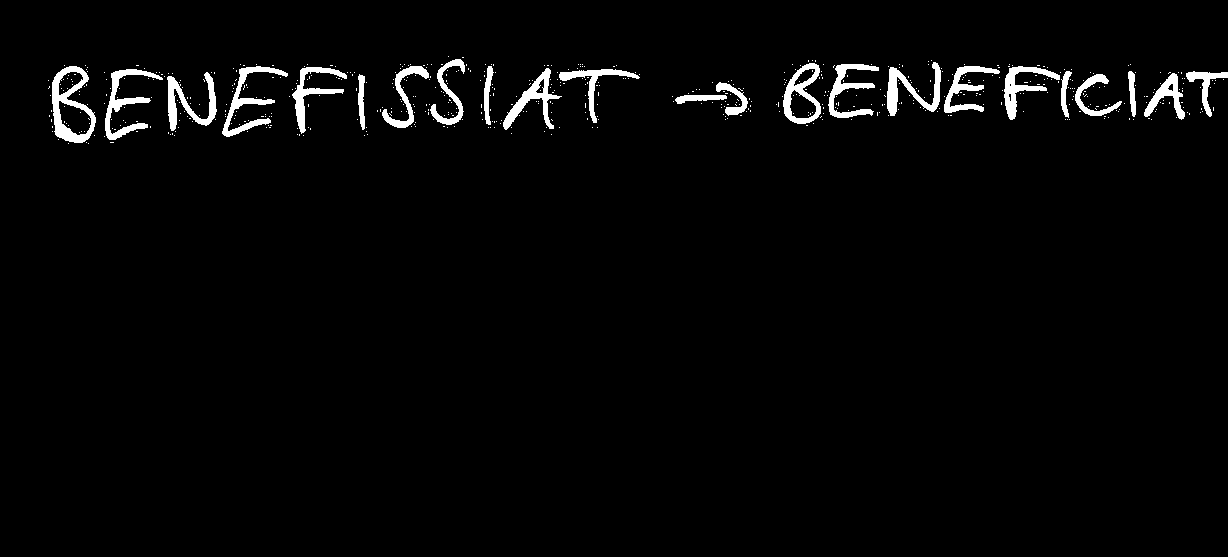 BENEFISSIAT → BENEFICIAT